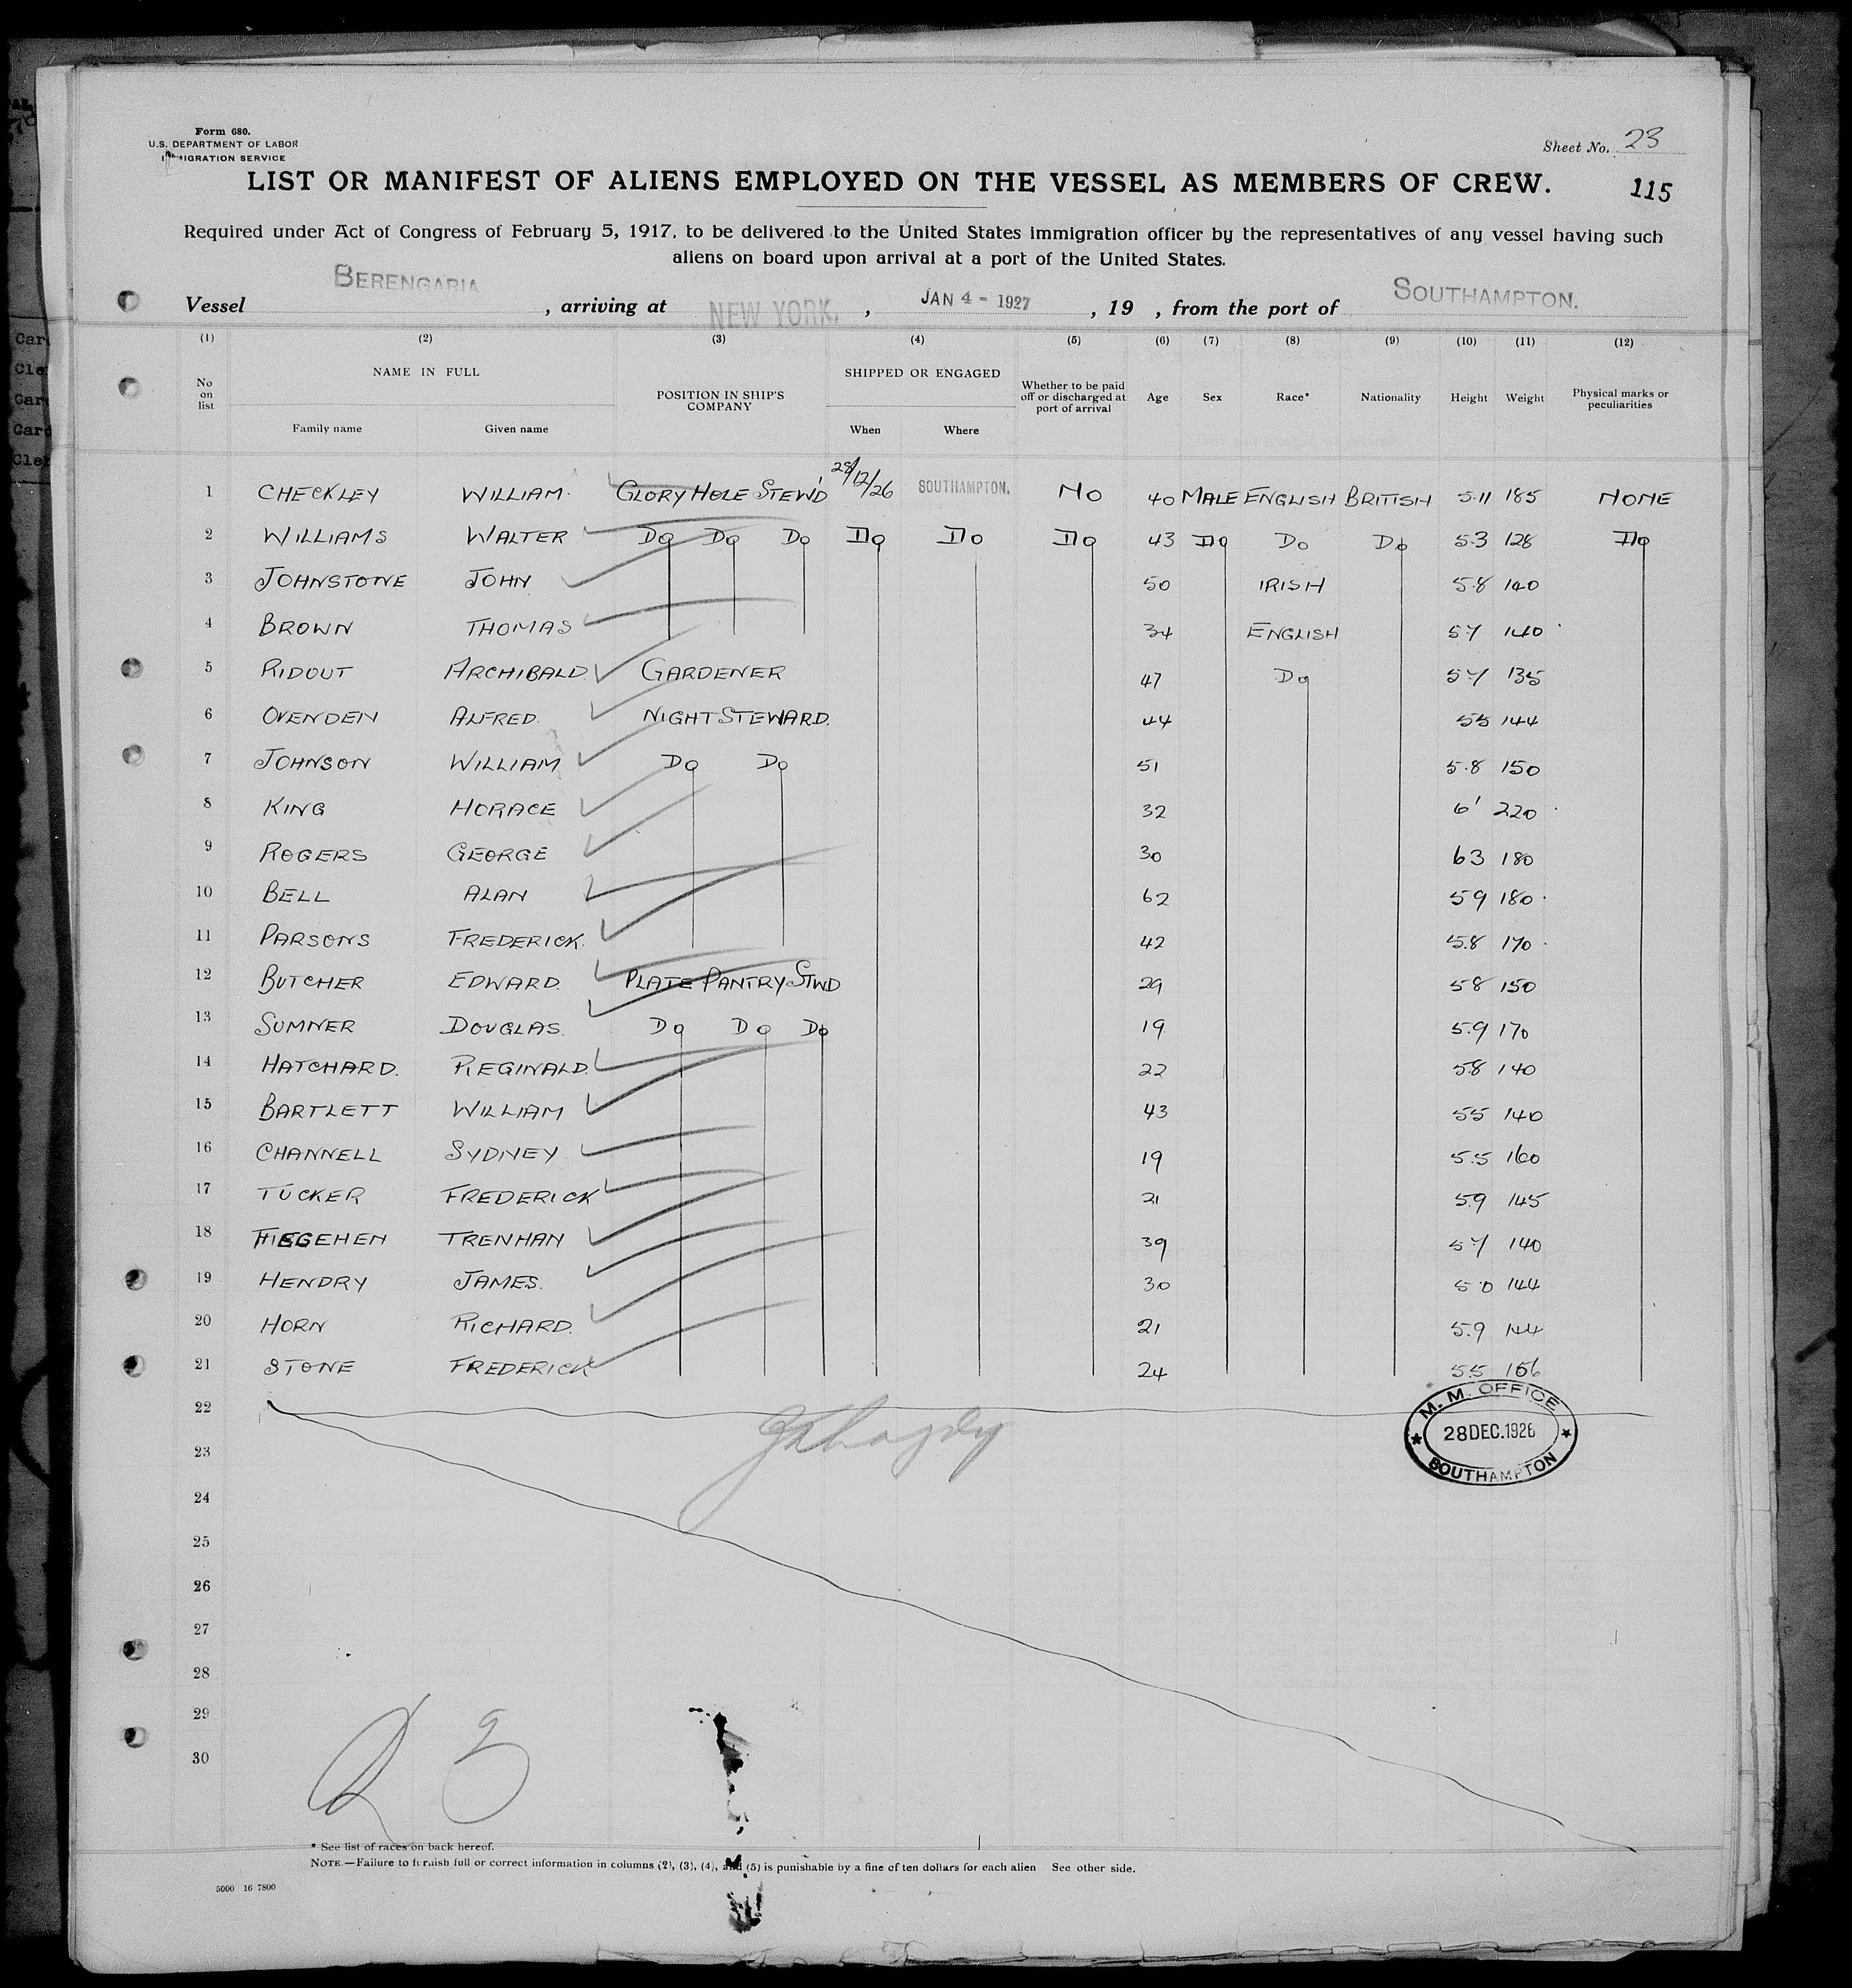 Form 680.
U.S. DEPARTMENT OF LABOR
IMMIGRATION SERVICE
Sheet No. 23
LIST OR MANIFEST OF ALIENS EMPLOYED ON THE VESSEL AS MEMBERS OF CREW.
115
Required under Act of Congress of February 5, 1917, to be delivered to the United States immigration officer by the representatives of any vessel having such
aliens on board upon arrival at a port of the United States.
Vessel BERENGARIA, arriving at NEW YORK, JAN 4 - 1927, 19 , from the port of SOUTHAMPTON.
(1) (2) (3) (4) (5) (6) (7) (8) (9) (10) (11) (12)
No on list NAME IN FULL POSITION IN SHIP'S COMPANY SHIPPED OR ENGAGED Whether to be paid off or discharged at port of arrival Age Sex Race* Nationality Height Weight Physical marks or peculiarities
Family name Given name When Where
1 CHECKLEY WILLIAM. GLORY HOLE STEW'D 28/12/26 SOUTHAMPTON. NO 40 MALE ENGLISH BRITISH 5.11 185 NONE
2 WILLIAMS WALTER DO DO DO DO DO DO 43 DO DO DO 5.3 128 DO
3 JOHNSTONE JOHN 50 IRISH 5.8 140
4 BROWN THOMAS 34 ENGLISH 5.7 140
5 RIDOUT ARCHIBALD GARDENER 47 DO 5.7 135
6 OVENDEN ALFRED. NIGHT STEWARD. 44 55 144
7 JOHNSON WILLIAM DO DO 51 5.8 150
8 KING HORACE 32 6' 220
9 ROGERS GEORGE 30 63 180
10 BELL ALAN 62 59 180
11 PARSONS FREDERICK. 42 5.8 170
12 BUTCHER EDWARD. PLATE PANTRY STWD 29 58 150
13 SUMNER DOUGLAS. DO DO DO 19 5.9 170
14 HATCHARD. REGINALD. 22 58 140
15 BARTLETT WILLIAM 43 55 140
16 CHANNELL SYDNEY 19 5.5 160
17 TUCKER FREDERICK 21 59 145
18 TRENHAN 39 57 140
19 HENDRY JAMES. 30 5.0 144
20 HORN RICHARD. 21 5.9 144
21 STONE FREDERICK 24 5.5
22
M. M. OFFICE
28 DEC. 1926
SOUTHAMPTON
23
24
25
26
27
28
29
30
* See list of races on back hereof.
NOTE.—Failure to furnish full or correct information in columns (2), (3), (4), and (5) is punishable by a fine of ten dollars for each alien See other side.
5000 16 7800